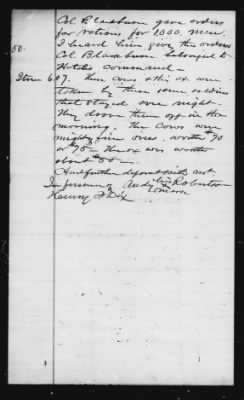 Col Blackburn gave orders
for rations for 1000. men.
50. I heard him give the orders
Col. Blackburn belonged to
command.
Item 6 & 7. The cows & the ox were
taken by these same soldiers
that stayed over night.
They drove them off in the
morning. The cows were
mighty fine ones, worth $70
or $75 - The ox was worth
about $50 -
And further deponent saith not
In presence Andy his Robertson
Henry